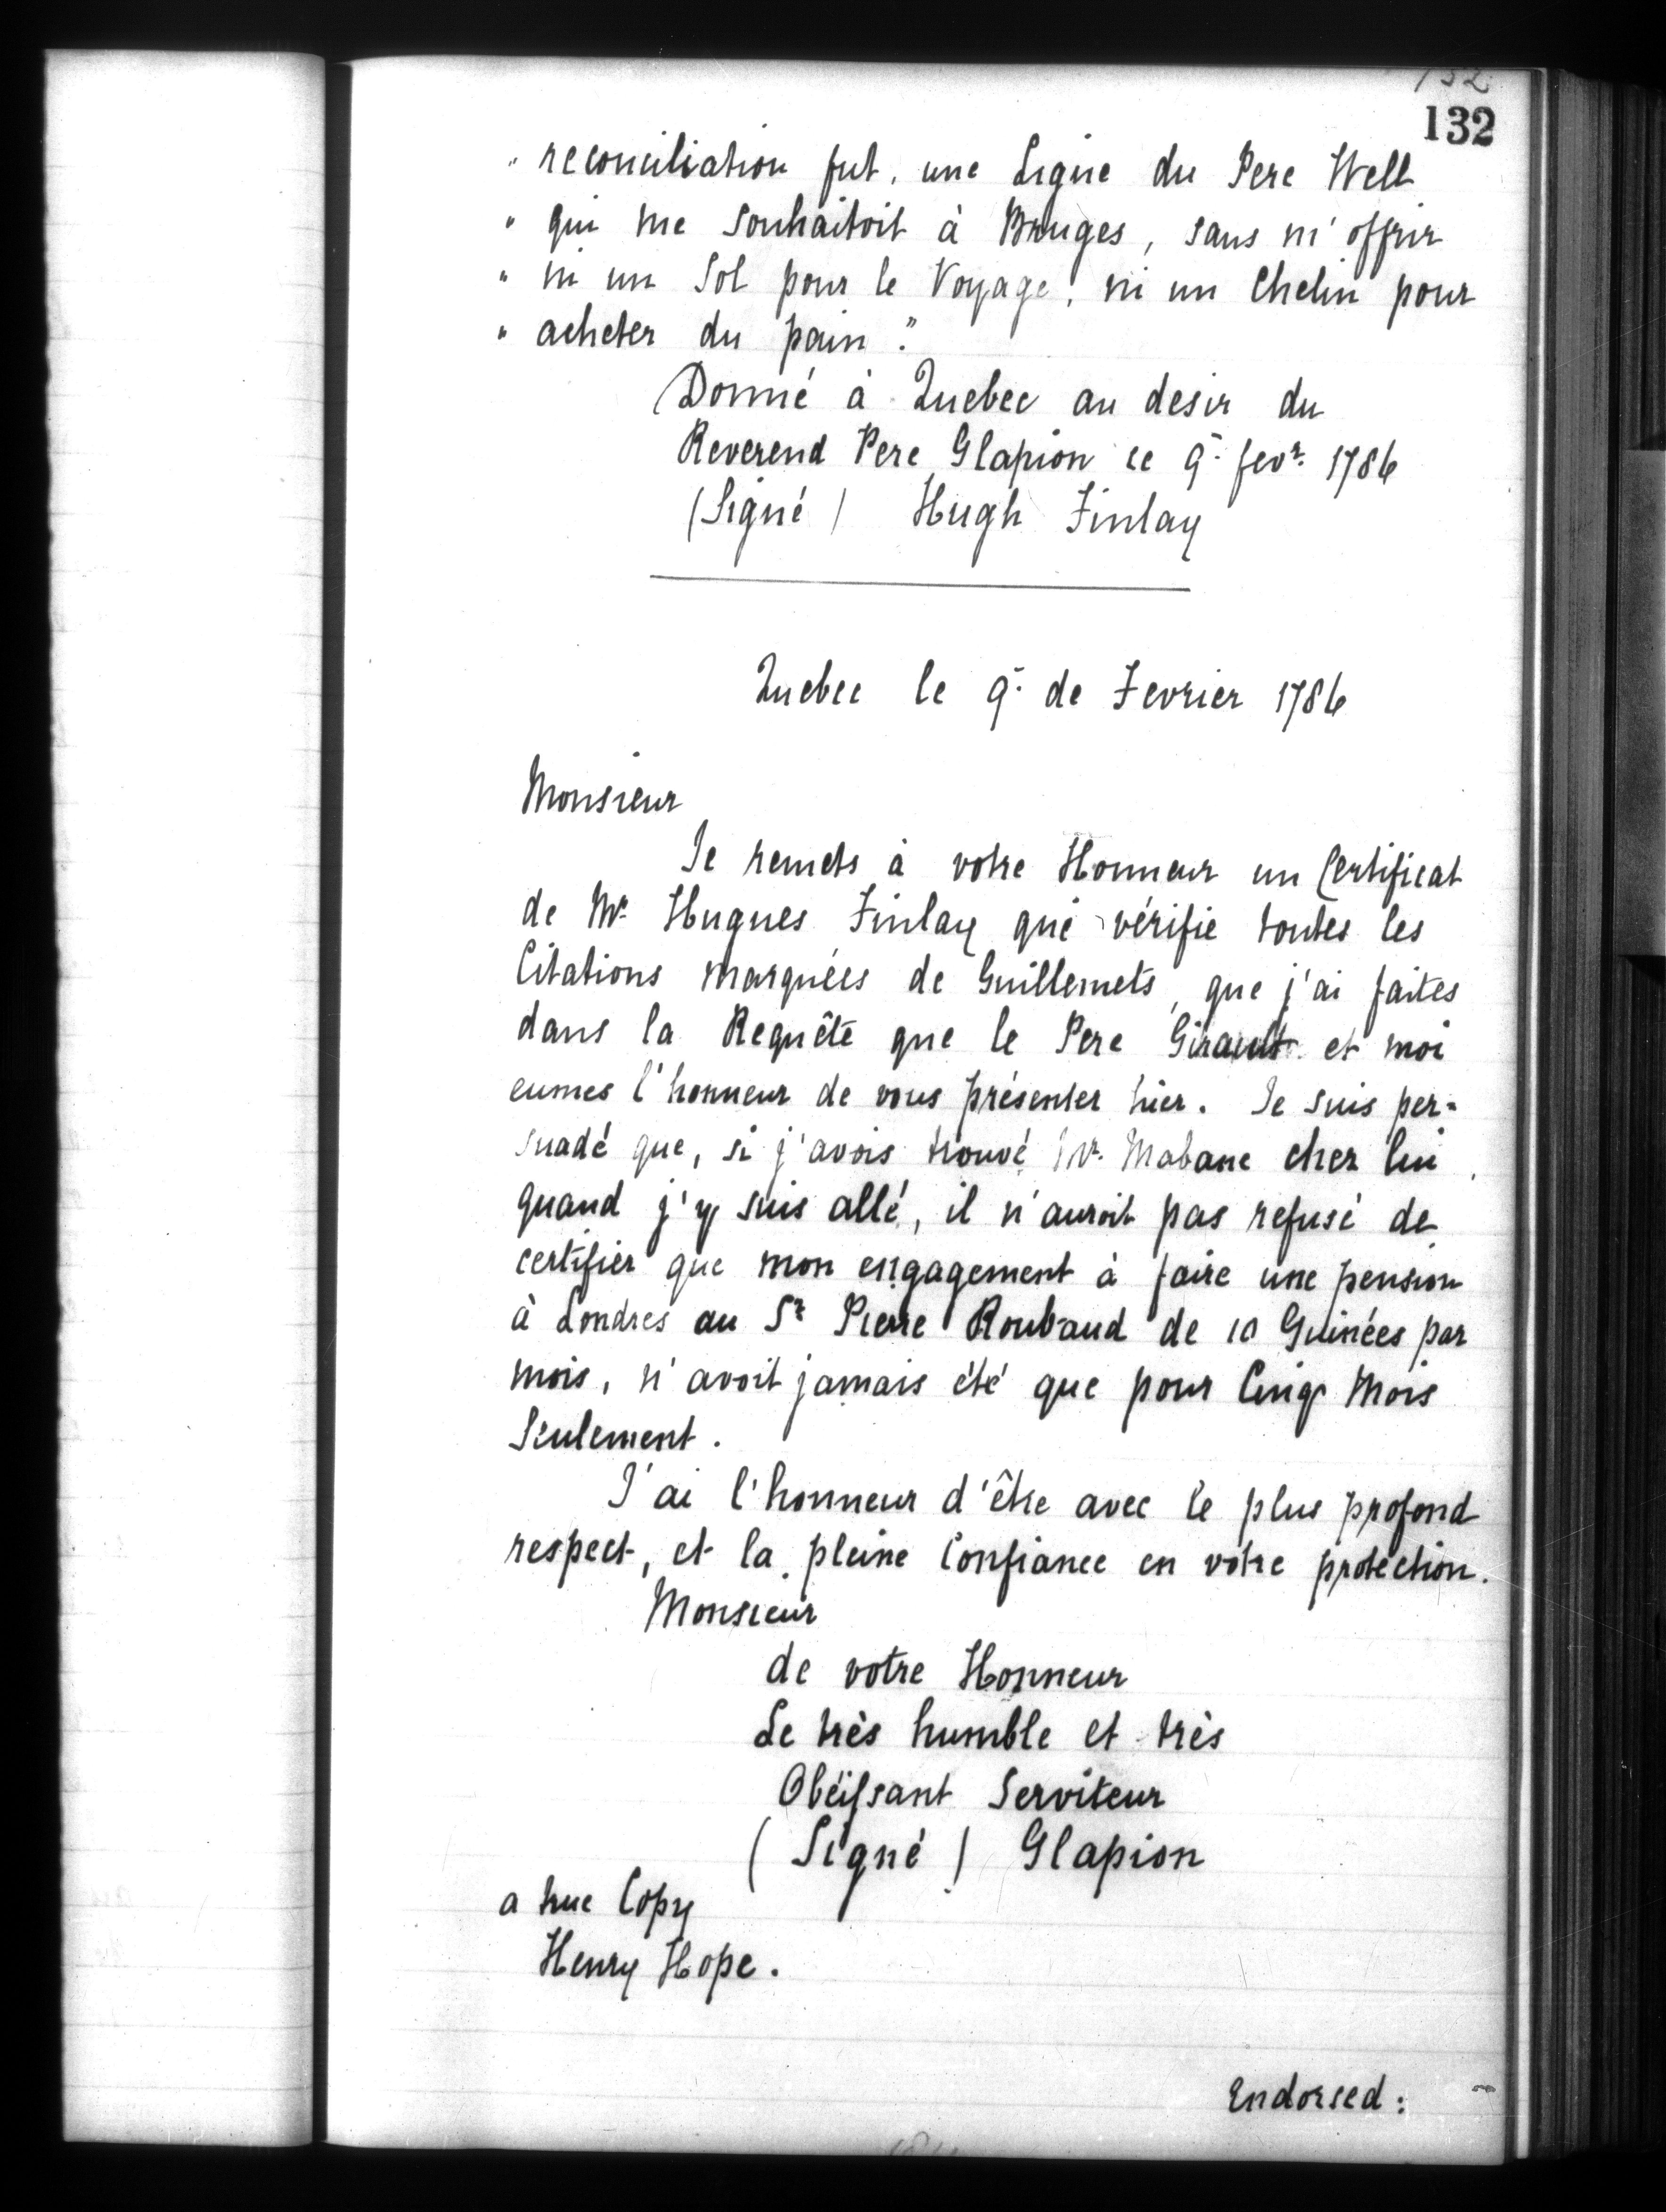 132
132
" reconciliation fut, une Ligne du Pere Well
" qui me souhaitoit à Bruges, sans m'offrir
" ni un Sol pour le Voyage, ni un Chelin pour
" acheter du pain."
Donné à Quebec au desir du
Reverend Pere Glapion ce 9- fevr. 1786
(Signé) Hugh Finlay
Quebec le 9- de Fevrier 1786
Monsieur
Je remets à votre Honneur un Certificat
de Mr. Hugues Finlay qui vérifie toutes les
Citations marquées de Guillemets, que j'ai faites
dans la Requête que le Pere Girault et moi
eumes l'honneur de vous présenter hier. Je suis per=
suadé que, si j'avois trouvé Mr. Mabane chez lui
quand j'y suis allé, il n'auroit pas refusé de
certifier que mon engagement à faire une pension
à Londres au Sr. Pierre Roubaud de 10 Guinées par
mois, n'avoit jamais été que pour Cinq Mois
Seulement.
J'ai l'honneur d'être avec le plus profond
respect, et la pleine Confiance en votre protection.
Monsieur
de votre Honneur
Le très humble et très
Obéissant Serviteur
(Signé) Glapion
a true Copy
Henry Hope.
Endorsed: